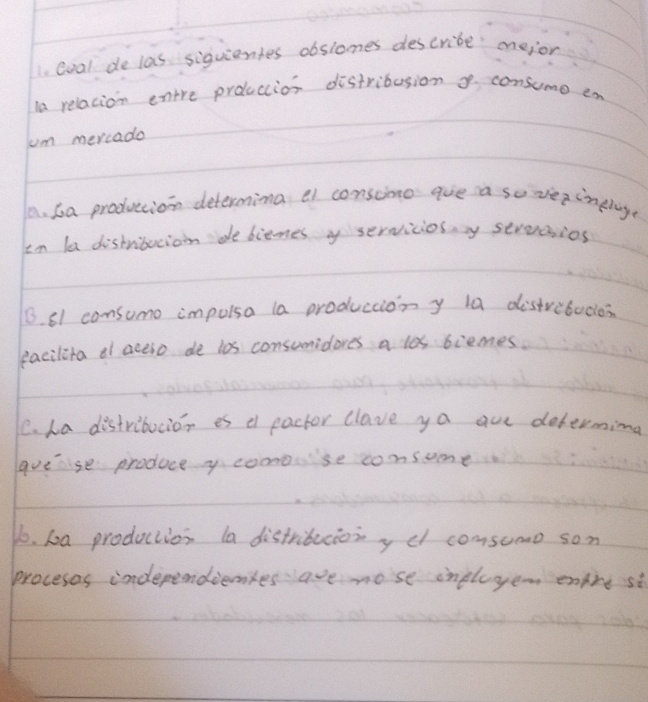 1. Cual de las siguientes obsiones describe mejor
la relacion entre producción distribusion y consumo en
um mercado
a. La producción determina el consumo que a su vez imfluye
en la distribucion de biemes y servicios y servicios
B. El consumo impulsa la producción y la distribución
facilita el aceso de los consumidores a los biemes.
C. La distribución es el factor clave ya que determima
que se produce y como se consume
D. La producción la distribución y el comsumo son
procesos independiemtes que mo se imfluyem entre si